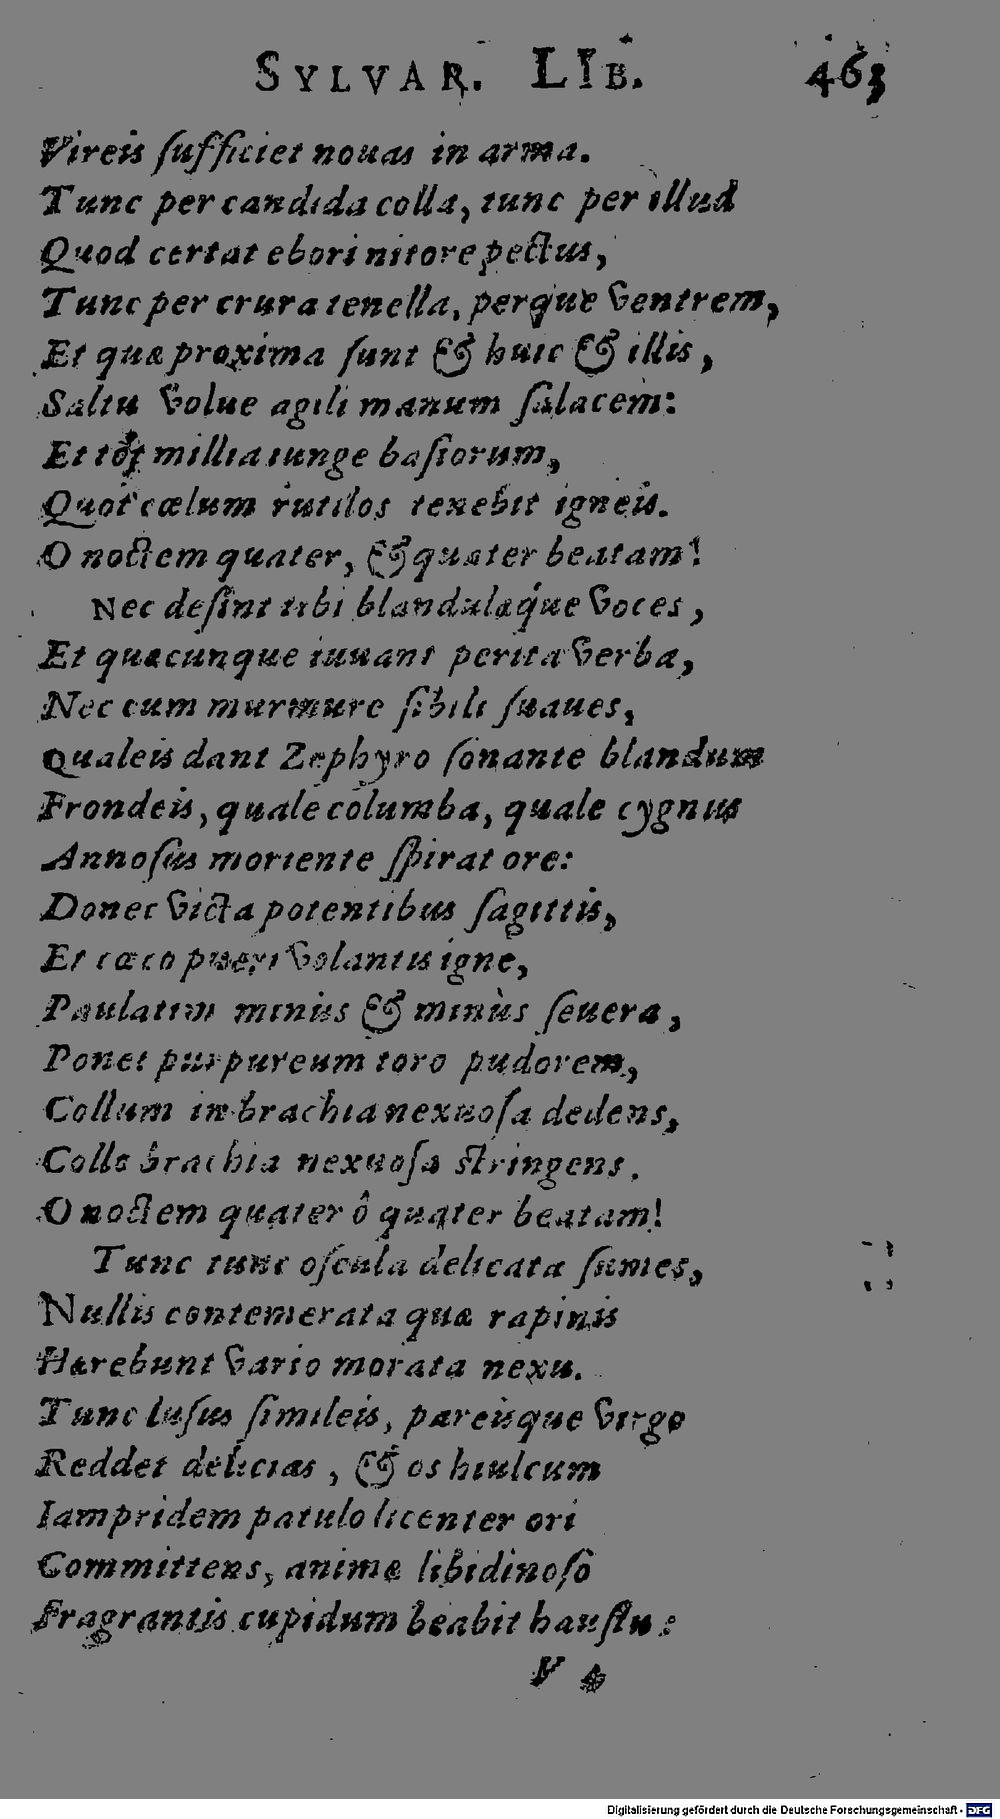 SYLVAR. LIB. 463
Vireis ſufficiet nouas in arma.
Tunc per candida colla, tunc per illud
Quod certat ebori nitore pectus,
Tunc per crura tenella, perque ventrem,
Et quæ proxima ſunt & huic & illis,
Saltu volue agili manum ſalacem:
Et tot millia iunge baſiorum,
Quot cœlum rutilos tenebit igneis.
O noctem quater, & quater beatam!
Nec deſint tibi blandulæque voces,
Et quæcunque iuuant perita verba,
Nec cum murmure ſibili ſuaues,
Qualeis dant Zephyro ſonante blandum
Frondeis, quale columba, quale cygnus
Annoſus moriente ſpirat ore:
Donec victa potentibus ſagittis,
Et cæco pueri volantis igne,
Paulatim minùs & minùs ſeuera,
Ponet purpureum toro pudorem,
Collum in brachia nexuoſa dedens,
Collo brachia nexuoſa ſtringens.
O noctem quater ô quater beatam!
Tunc tunc oſcula delicata ſumes,
Nullis contemerata quæ rapinis
Hærebunt vario morata nexu.
Tunc luſus ſimileis, pareisque virgo
Reddet delicias, & os hiulcum
Iampridem patulo licenter ori
Committens, animæ libidinoſo
Fragrantis cupidum beabit hauſtu:
V 4
Digitalisierung gefördert durch die Deutsche Forschungsgemeinschaft - DFG